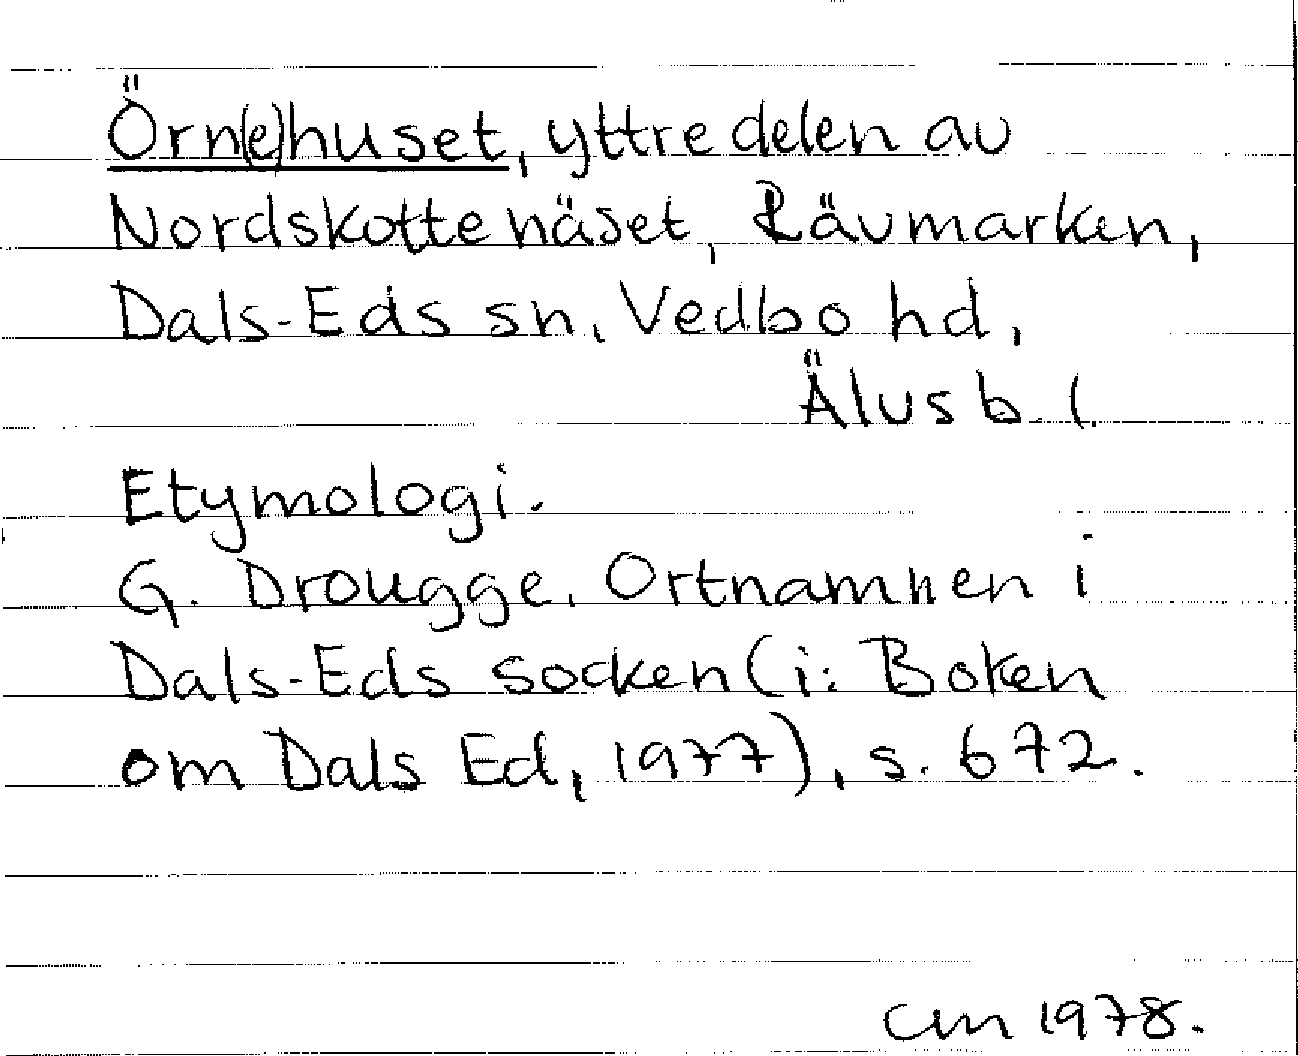 Örn(e)huset, yttre delen av
Nordskottenäset, Rävmarken,
Dals-Eds sn, Vedbo hd,
Älvsb. l.
Etymologi.
G. Drougge, Ortnamnen i
Dals-Eds socken (i: Boken
om Dals Ed, 1977), s. 672.
CM 1978.